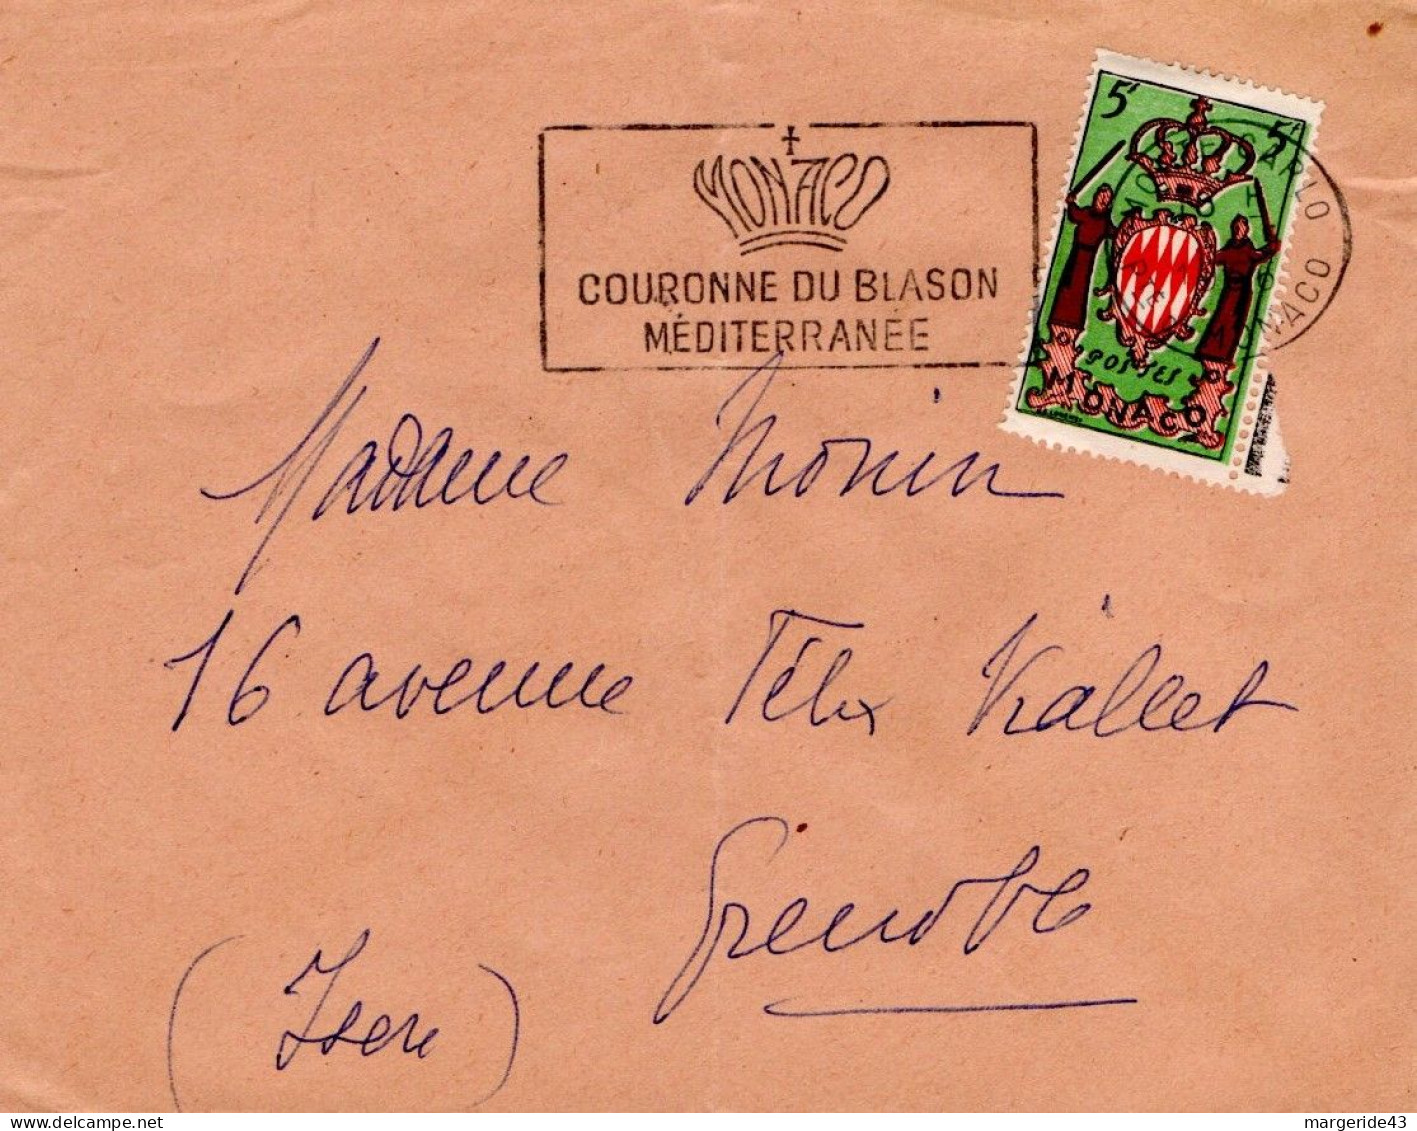 MONACO
COURONNE DU BLASON
MÉDITERRANÉE
5F 5F
POSTES
MONACO
MONTE CARLO
MONACO
Madame Monin
16 avenue Félix Viallet
Grenoble
(Isère)
margeride43